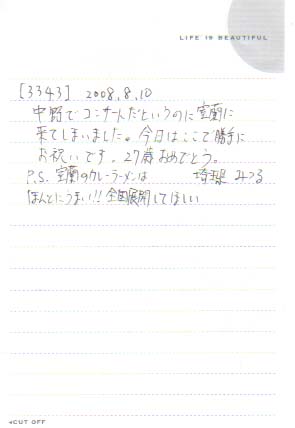 LIFE IS BEAUTIFUL
[3343] 2008.8.10
中野でコンサートだというのに室蘭に
来てしまいました。今日はここで勝手に
お祝いです。27歳おめでとう。
P.S. 室蘭のカレーラーメンは 埼玉県 みつる
ほんとにうまい!!全国展開してほしい
CUT OFF